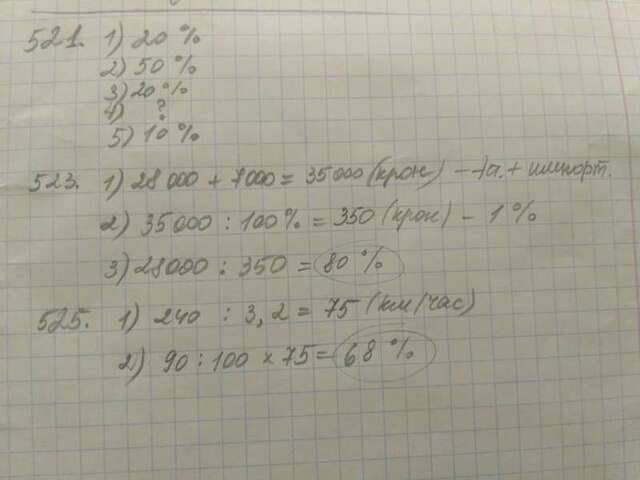 521. 1) 20 %
2) 50 %
3) 20 %
4) ?
5) 10 %
523. 1) 28 000 + 7000 = 35 000 (крон) – + импорт.
2) 35 000 : 100 % = 350 (крон) – 1 %
3) 28000 : 350 = 80 %
525. 1) 240 : 3,2 = 75 (км/час)
2) 90 : 100 × 75 = 68 %